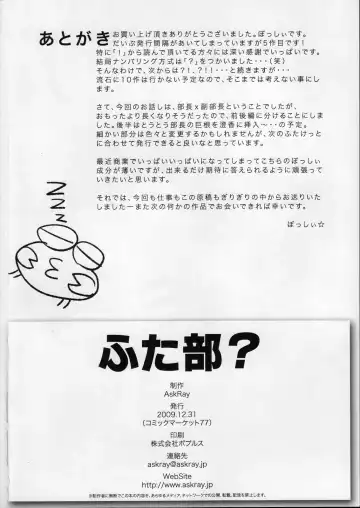 あとがき
お買い上げ頂きありがとうございました。ぽっしぃです。
だいぶ発行間隔があいてしまっていますが5作目です！
特に「！」から読んで頂いてる方々には深い感謝でいっぱいです。
結局ナンバリング方式は「？」をつかいました～・・（笑）
そんなわけで、次からは？！、？！！・・・と続きますが・・・
流石に10作は行かない予定なので、そこまでは考えない事にします。
さて、今回のお話しは、部長ｘ副部長ということでしたが、
おもったより長くなりそうだったので、前後編に分けることにしました。
後半はとうとう部長の巨根を澄香に挿入～・・・の予定。
細かい部分は色々と変更するかもしれませんが、次のふたけっと
に合わせて発行できると良いなと思っています。
最近商業でいっぱいいっぱいになってしまってこちらのぽっしぃ
成分が薄いですが、出来るだけ期待に答えられるように頑張って
いきたいと思います。
それでは、今回も仕事もこの原稿もぎりぎりの中からお送りいた
しましたーまた次の何かの作品でお会いできれば幸いです。
ぽっしぃ☆
ZZZZ
ふた部？
制作
AskRay
発行
2009.12.31
（コミックマーケット77）
印刷
株式会社ポプルス
連絡先
askray@askray.jp
WebSite
http://www.askray.jp
※制作者に無断でこの本の内容を、あらゆるメディア、ネットワークでの公開、転載、配信を禁止します。